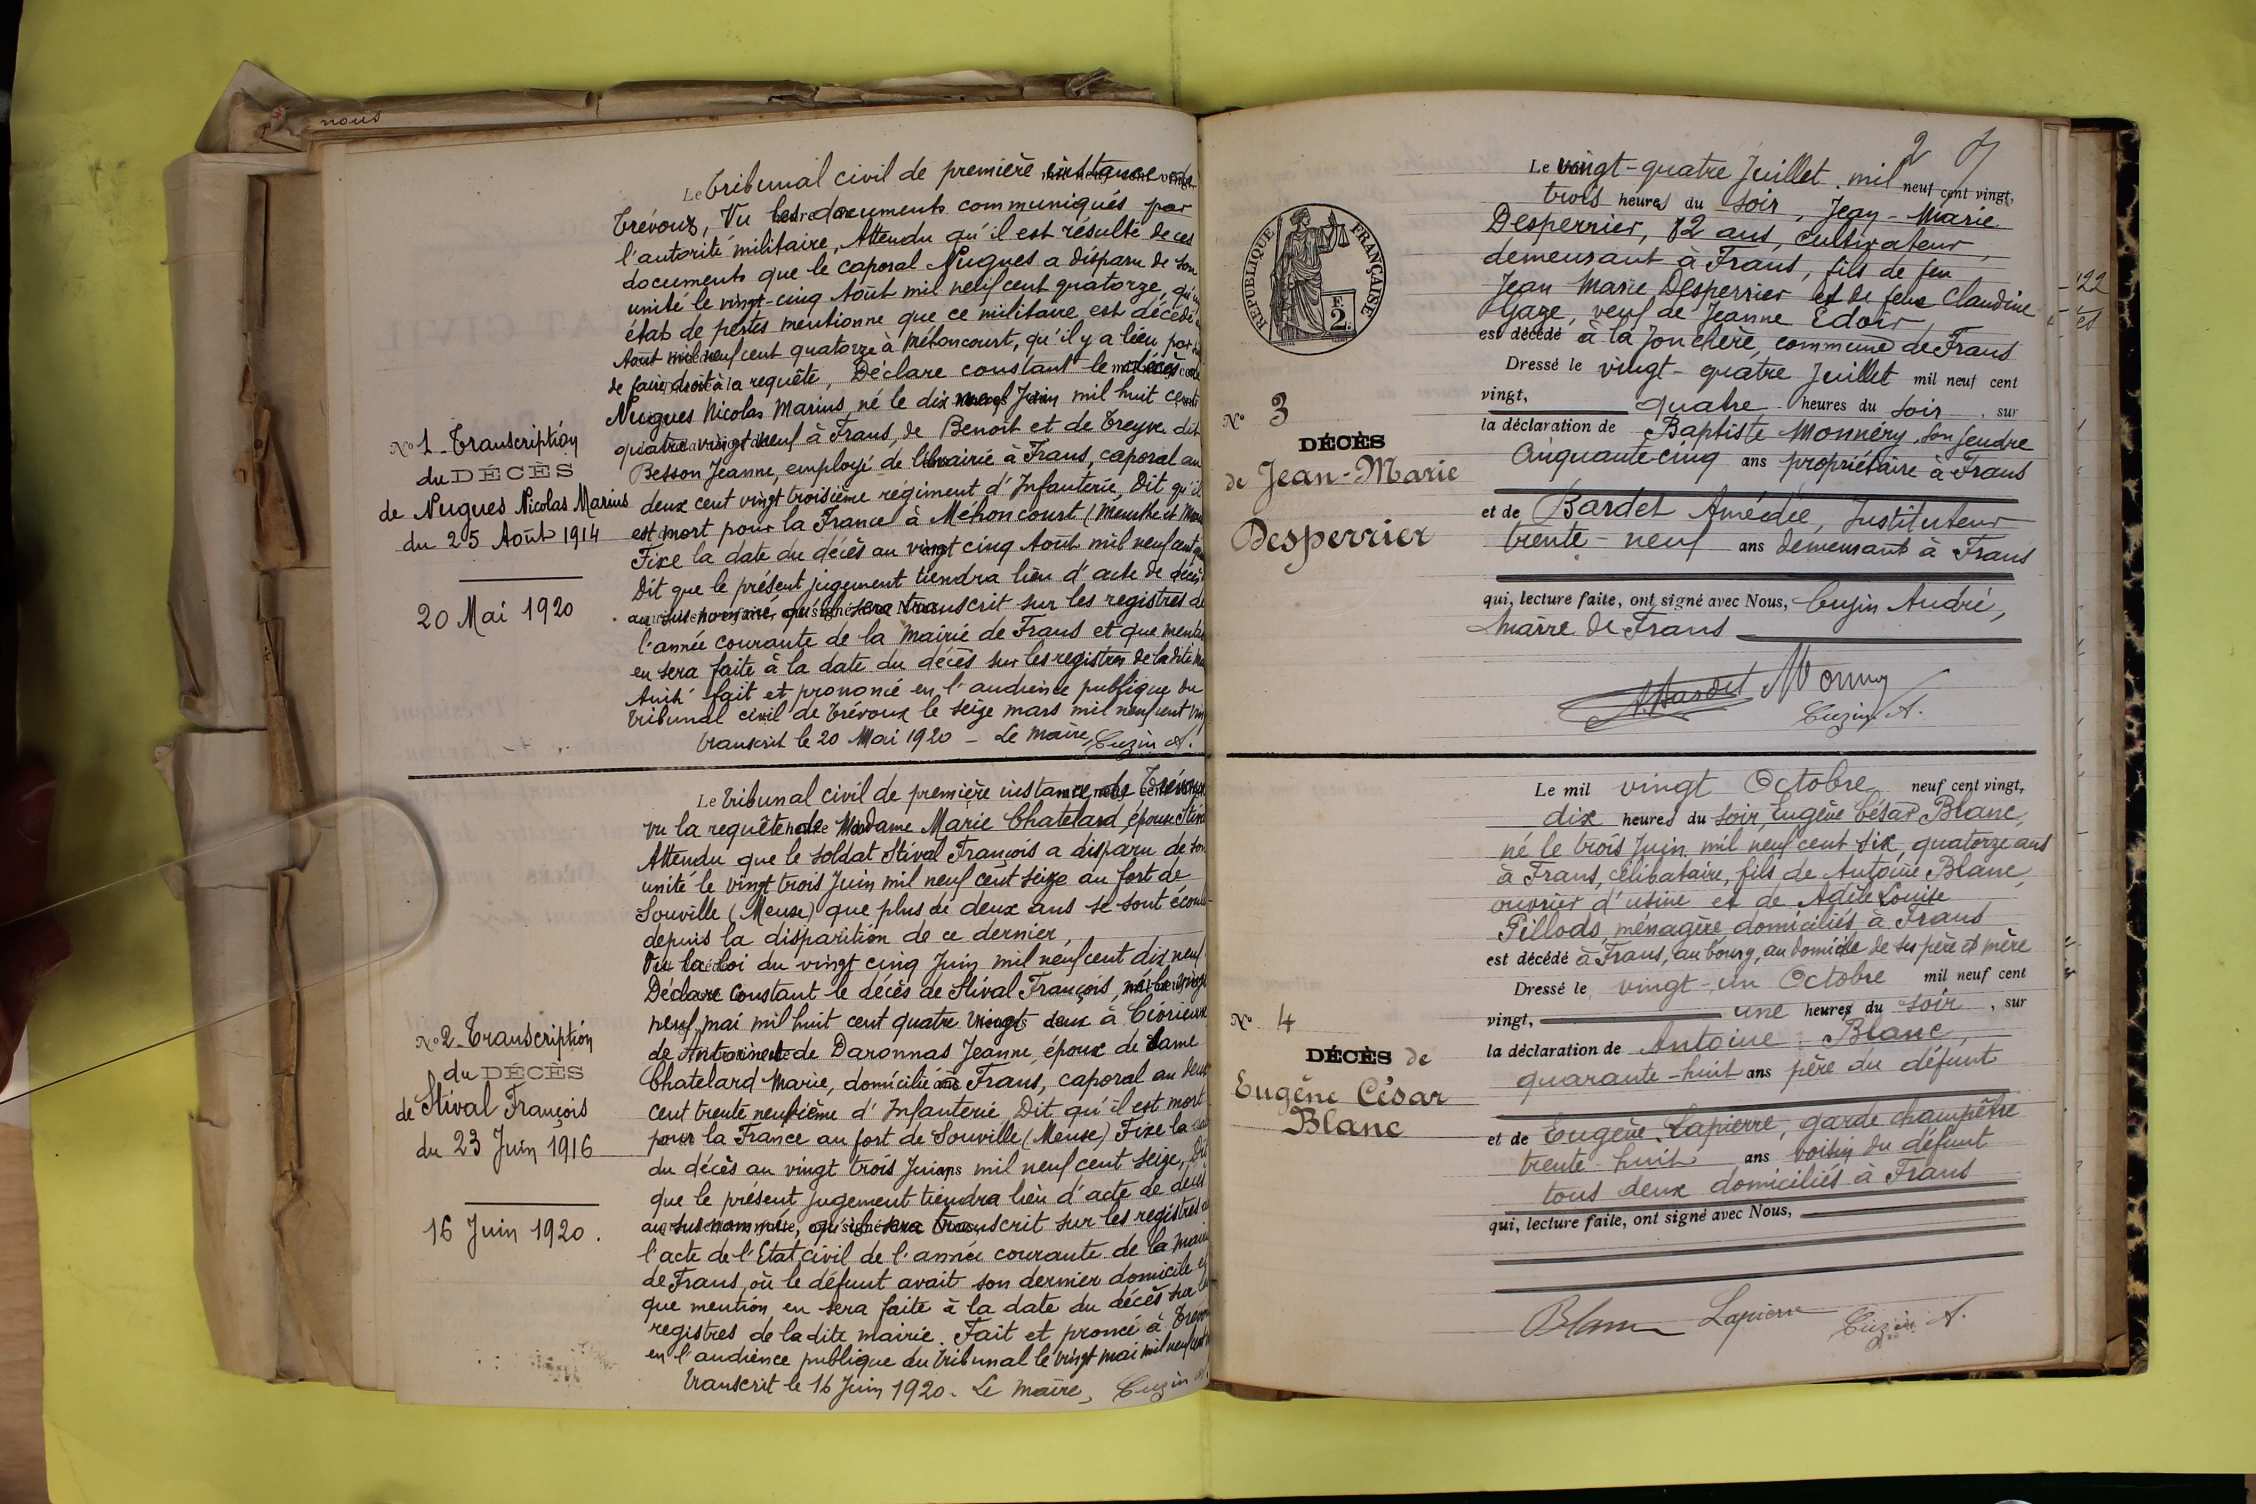 nous
Le Tribunal civil de première instance de
Trévoux, Vu les documents communiqués par
l'autorité militaire, Attendu qu'il est résulté de ces
documents que le caporal Nugues a disparu de son
unité le vingt-cinq Août mil neuf cent quatorze, qu'un
état de pertes mentionne que ce militaire est décédé
Août mil neuf cent quatorze à Méhoncourt, qu'il y a lieu par
de faire droit à la requête, Déclare constant le décès de
Nugues Nicolas Marius, né le dix Juin mil huit cent
quatre vingt neuf à Frans, de Benoît et de Treyve dit
Besson Jeanne, employé de librairie à Frans, caporal au
deux cent vingt troisième régiment d'Infanterie, Dit qu'il
est mort pour la France à Méhoncourt (Meurthe et
Fixe la date du décès au vingt cinq Août mil neuf cent
Dit que le présent jugement tiendra lieu d'acte de décès
au sus nommé, qu'il sera transcrit sur les registres de
l'année courante de la mairie de Frans et que
en sera faite à la date du décès sur les registres de la dite
Ainsi fait et prononcé en l'audience publique du
Tribunal civil de Trévoux le seize mars mil neuf cent
Transcrit le 20 Mai 1920 - Le maire, Cuzin A.
No 1 - Transcription
du DÉCÈS
de Nugues Nicolas Marius
du 25 Août 1914
20 Mai 1920
Le Tribunal civil de première instance de Trévoux
Vu la requête de Madame Marie Chatelard, épouse
Attendu que le soldat Stival François a disparu de son
unité le vingt trois Juin mil neuf cent seize au fort de
Souville (Meuse) que plus de deux ans se sont
depuis la disparition de ce dernier,
Vu la loi du vingt cinq Juin mil neuf cent dix neuf
Déclare Constant le décès de Stival François, né le vingt
neuf mai mil huit cent quatre vingt deux à Civrieux
de Antoine et de Daronnas Jeanne, époux de dame
Chatelard Marie, domicilié à Frans, caporal au deux
cent trente neuvième d'Infanterie Dit qu'il est mort
pour la France au fort de Souville (Meuse) Fixe la
du décès au vingt trois Juin mil neuf cent seize, Dit
que le présent jugement tiendra lieu d'acte de décès
au sus nommé, qu'il sera transcrit sur les registres
l'acte de l'Etat civil de l'année courante de la
de Frans, où le défunt avait son dernier domicile et
que mention en sera faite à la date du décès sur
registres de la dite mairie. Fait et proncé à
en l'audience publique du Tribunal le vingt mai mil neuf cent
Transcrit le 16 Juin 1920. Le maire, Cuzin
No 2 - Transcription
du DÉCÈS
de Stival François
du 23 Juin 1916
16 Juin 1920.
2
RÉPUBLIQUE FRANÇAISE
F.
2.
No 3
DÉCÈS
de Jean-Marie
Desperrier
Le vingt-quatre Juillet mil neuf cent vingt,
trois heures du soir, Jean-Marie
Desperrier, 82 ans, cultivateur,
demeurant à Frans, fils de feu
Jean Marie Desperrier et de feue Claudine
Gaze, veuf de Jeanne Edoir,
est décédé à la Jonchère, commune de Frans
Dressé le vingt-quatre Juillet mil neuf cent
vingt, quatre heures du soir, sur
la déclaration de Baptiste Monnéry, son gendre
Cinquante cinq ans propriétaire à Frans
et de Bardet Amédée, Instituteur
trente-neuf ans demeurant à Frans
qui, lecture faite, ont signé avec Nous, Cuzin André,
Maire de Frans
A. Bardet
Cuzin A.
No 4
DÉCÈS de
Eugène César
Blanc
Le mil vingt Octobre neuf cent vingt,
dix heures du soir, Eugène César Blanc,
né le trois Juin mil neuf cent six, quatorze ans
à Frans, célibataire, fils de Antoine Blanc,
ouvrier d'usine et de Adèle Louise
Pillods, ménagère, domiciliés à Frans
est décédé à Frans, au bourg, au domicile de ses père et mère
Dressé le vingt-un Octobre mil neuf cent
vingt, une heures du soir, sur
la déclaration de Antoine Blanc,
quarante-huit ans père du défunt
et de Eugène Lapierre, garde champêtre
trente-huit ans voisin du défunt
tous deux domiciliés à Frans
qui, lecture faite, ont signé avec Nous,
Blanc Lapierre Cuzin A.